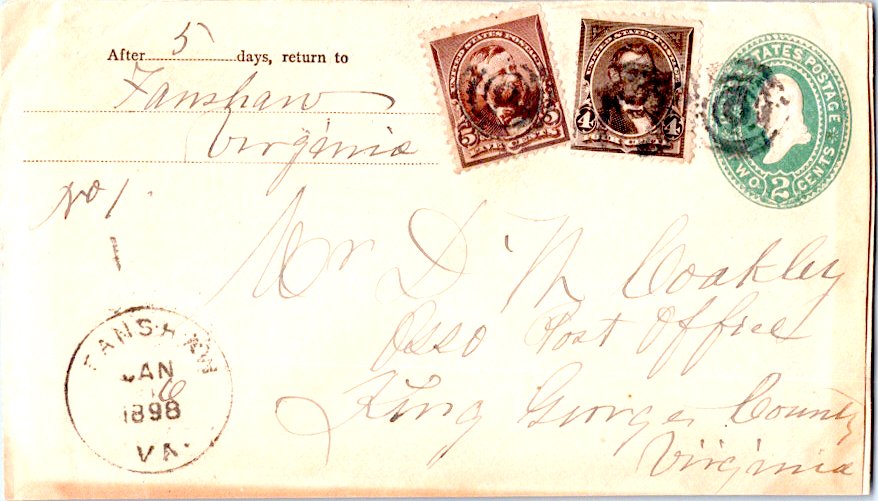 After 5 days, return to
Fanshaw
Virginia
No 1
UNITED STATES POSTAGE
5 5
FIVE CENTS
UNITED STATES POSTAGE
4 4
CENTS
STATES POSTAGE
TWO 2 CENTS
Mr D. M Coakley
Osso Post Office
King George County
Virginia
FANSHAW
JAN
16
1898
VA.